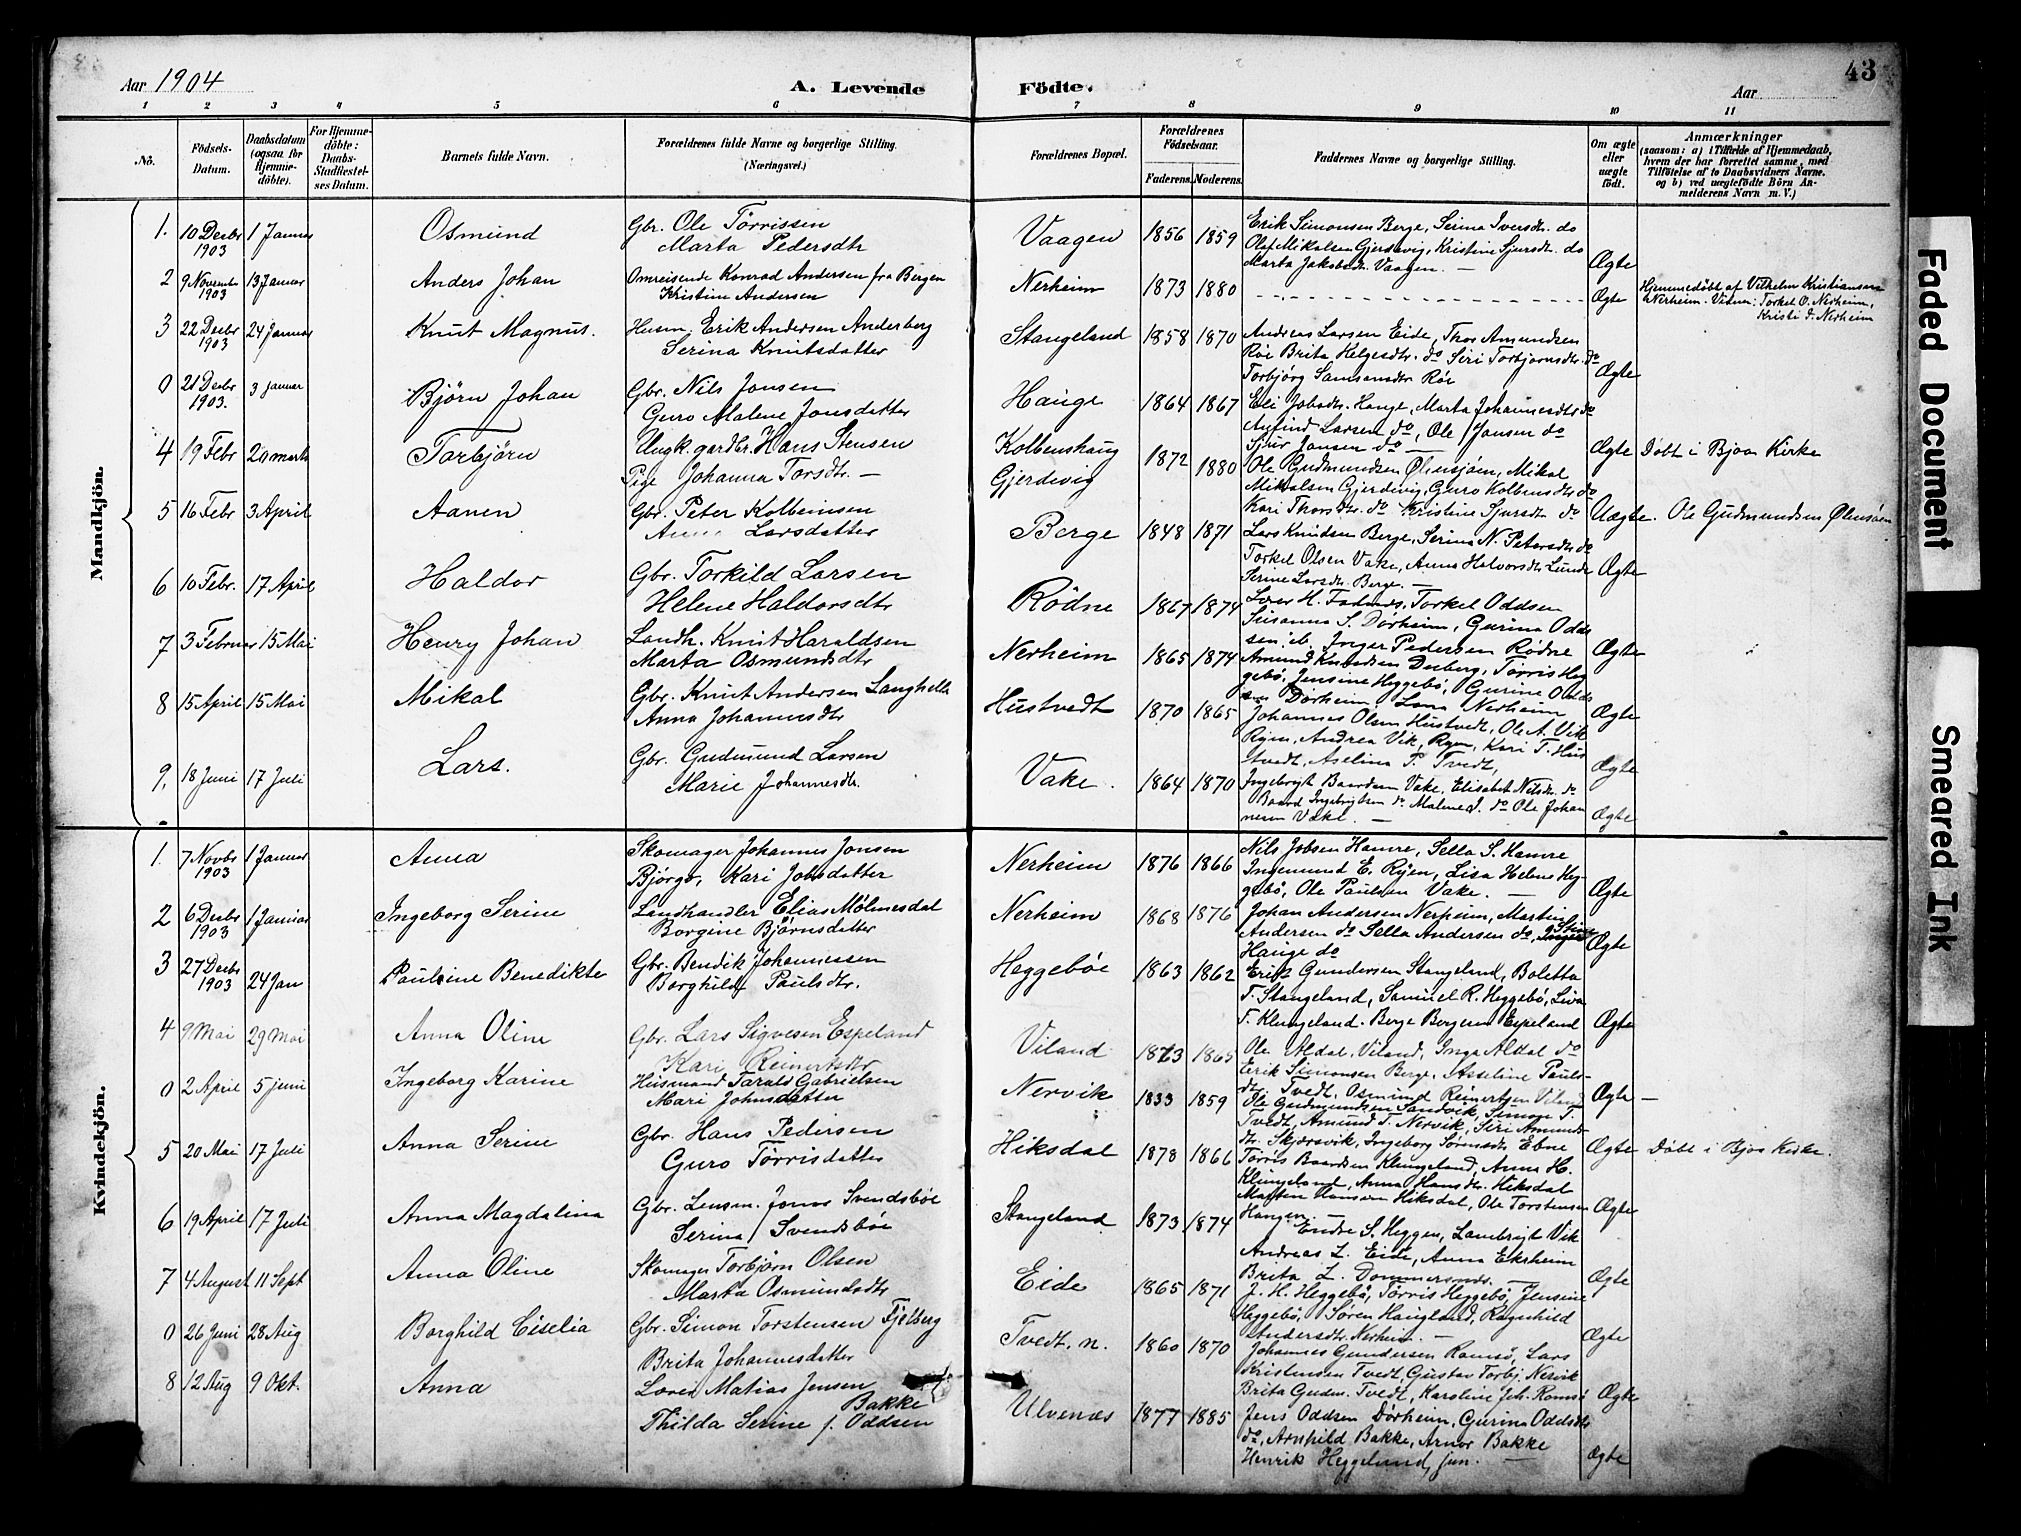 Aar 1904
A. Levende Födte.
43
Aar
1 2 3 4 5 6 7 8 9 10 11
No.
Födsels-Datum.
Daabsdatum (ogsaa for Hjemme-döbte).
For Hjemme-döbte: Daabs-Stadfæstel-ses Datum.
Barnets fulde Navn.
Forældrenes fulde Navne og borgerlige Stilling.
(Næringsvei.)
Forældrenes Bopæl.
Forældrenes Födselsaar.
Faderens. Moderens.
Faddernes Navne og borgerlige Stilling.
Om ægte eller uægte födt.
Anmærkninger
(saasom: a) i Tilfælde af Hjemmedaab,
hvem der har forrettet samme, med
Tilföielse af to Daabsvidners Navne,
og b) ved uægtefödte Börn An-
melderens Navn m. V.)
Mandkjön.
1. 10 Decbr 1903 1 Januar Osmund Gbr. Ole Tørrissen
Marta Pedersdtr
Vaagen 1856 1859 Erik Simonsen Berge, Serina Iversdtr. do
Olaf Mikalsen Gjerdevig, Kristine Sjursdtr. do
Marta Jakobsdtr. Vaagen. — Ægte
2 9 Novembr 1903 13 Januar Anders Johan Omreisende Konrad Andersen fra Bergen
Kristine Andersen
Nerheim 1873 1880 Ægte Hjemmedøbt af Vilhelm Kristiansen
Nerheim. Vidner: Torkel O. Nerheim,
Kristi do Nerheim
3 22 Decbr 1903 24 Januar Knut Magnus. Husm. Erik Andersen Anderberg
Serina Knutsdatter
Stangeland 1858 1870 Andreas Larsen Eide, Thor Amundsen
Røe Brita Helgesdtr. do Siri Torbjørnsdtr. do
Torbjørg Samsonsdtr Røe Ægte
0 21 Decbr 1903. 3 januar Bjørn Johan Gbr. Nils Jonsen
Guro Malene Jonsdatter
Hauge 1864 1867 Eli Jobsdtr. Hauge, Marta Johannesdtr do
Anfind Larsen do, Ole Jansen do
Sjur Jansen do — Ægte Døbt i Bjoa Kirke
4 19 Febr 20 marts Torbjörn Ungk. gardbr. Hans Stensen
Pige Johanna Torsdtr. —
Kolbenshaug
Gjerdevig
1872 1880 Ole Gudmundsen Ølensjøen, Mikal
Mikalsen Gjerdevig, Guro Kolbensdtr do
Kari Thorsdtr. do Kristine Sjursdtr do Uægte. Ole Gudmundsen Ølensøen
5 16 Febr 3 April Aanen Gbr. Peter Kolbeinsen
Larsdatter
Berge 1848 1871 Lars Knudsen Berge, Serina N. Petersdtr. do
Torkel Olsen Vake, Anna Halvorsdtr Lunde
Serine Larsdtr. Berge. — Ægte
6 10 Febr. 17 April Haldor Gbr. Torkild Larsen
Helene Haldorsdtr
Rödne 1867 1874
Torkel Oddsen
Susanna S. Dørheim, Gurina Odd-
sen ib, Inger Pedersen Rødne Ægte
7 3 Februar 15 Mai Henry Johan Landh. Knut Haraldsen
Marta Osmundsdtr
Nerheim 1865 1874 Amund Knudsen Desberg, Tørris Heg-
gebø, Jensine Heggebø, Gurine Odds-
en Dørheim, Lena Nerheim Ægte
8 15 April 15 Mai Mikal Gbr. Knut Andersen Langhelle
Anna Johannesdtr
Hustvedt 1870 1865 Johannes Olsen Hustvedt, Ole A. Vik
Ryen, Andrea Vik, Ryen, Kari T. Hus-
tvedt, Aselina P. Tvedt, Ægte
9. 18 Juni 17 Juli Lars. Gbr. Gudmund Larsen
Marie Johannesdtr.
Vake. 1864 1870 Ingebrigt Baardsen Vake, Elisabet Nilsdtr. do
Baard Ingebrigtsen do Malene J. do Ole Johan-
nesen Vake. — Ægte
Kvindekjön.
1. 7 Novbr 1903 1 Januar Anna Skomager Johannes Jonsen
Bjørgo, Kari Jobsdatter
Nerheim 1876 1866 Nils Jobsen Hamre, Sella S. Hamre
Ingemund E. Ryen, Lisa Helene Heg-
gebø, Ole Paulsen Vake. — Ægte
2 6 Decbr 1903 1 Januar Ingeborg Serine Landhandler Elias Mölmesdal
Borgine Bjørnsdatter
Nerheim 1868 1876 Johan Andersen Nerheim, Martin
Andersen do Sella Andersen do, Stine
Hauge do Ægte
3 27 Decbr 1903 24 Jan Paulsine Benedikte Gbr. Bendik Johannessen
Borghild Paulsdtr.
Heggebøe 1863 1862 Erik Gundersen Stangeland, Boletta
T. Stangeland, Samuel R. Heggebø, Lisa
T. Klungeland. Berge Bergersen Espeland Ægte
4 9 Mai 29 Mai Anna Oline Gbr. Lars Sigvesen Espeland
Kari Reinertsdtr
Viland 1873 1865 Ole Aldal, Viland, Inga Aldal do
Erik Simonsen Berge, Asseline Pauls-
dtr Tvedt, Osmund Reinertsen Viland Ægte —
0 2 April 5 juni Ingeborg Karine Husmand Tarald Gabrielsen
Mari Johnsdatter
Nervik 1833 1859 Ole Gudmundsen Sandvik, Simon T.
Tvedt, Amund T. Nervik, Siri Amunds-
dtr. Skjærsvik, Ingeborg Sørensdtr Ebne Ægte Døbt i Bjoa Kirke.
5 20 Mai 17 Juli Anna Serine Gbr. Hans Pedersen
Guro Tørrisdatter
Hiksdal 1878 1866 Tørris Baardsen Klungeland, Anna H.
Klungeland, Anna Hansdtr. Hiksdal
Marten Hansen Hiksdal, Ole Torstensen
Haugen. — Ægte
6 19 April 17 Juli Anna Magdalina Gbr. Lensm. Jonas Svendsbøe
Serina Svendsbøe
Stangeland 1873 1874 Endre S. Heggen, Lambrigt Vik
Andreas L. Eide, Anna Eksheim
Brita L. Dommersnes. Ægte
7 4 August 11 Sept Anna Oline Skomager Torbjørn Olsen
Marta Osmundsdtr
Eide 1865 1871 J. H. Heggebø, Tørris Heggebø, Jensine
Heggebø, Søren Haugland, Ragnhild
Andersdtr. Nerheim. — Ægte
0 26 Juni 28 Aug Borghild Ciselia Gbr. Simon Torstensen Fjelberg
Brita Johannesdatter
Tvedt. n. 1860 1870 Johannes Gundersen Ramsø, Lars
Kristensen Tvedt, Gustav Torbj. Nervik
Brita Gudm. Tvedt, Karoline Joh. Ramsø Ægte
8 12 Aug 9 Okt. Anna Loren Matias Jensen
Bakke
Thilda Serine f. Oddsen
Ulvenæs 1877 1885 Jens Oddsen Dørheim, Gjurina Oddsdtr
do, Arnhild Bakke, Arnor Bakke
Henrik Heggelund, jun. — Ægte
Faded Document
Smeared Ink